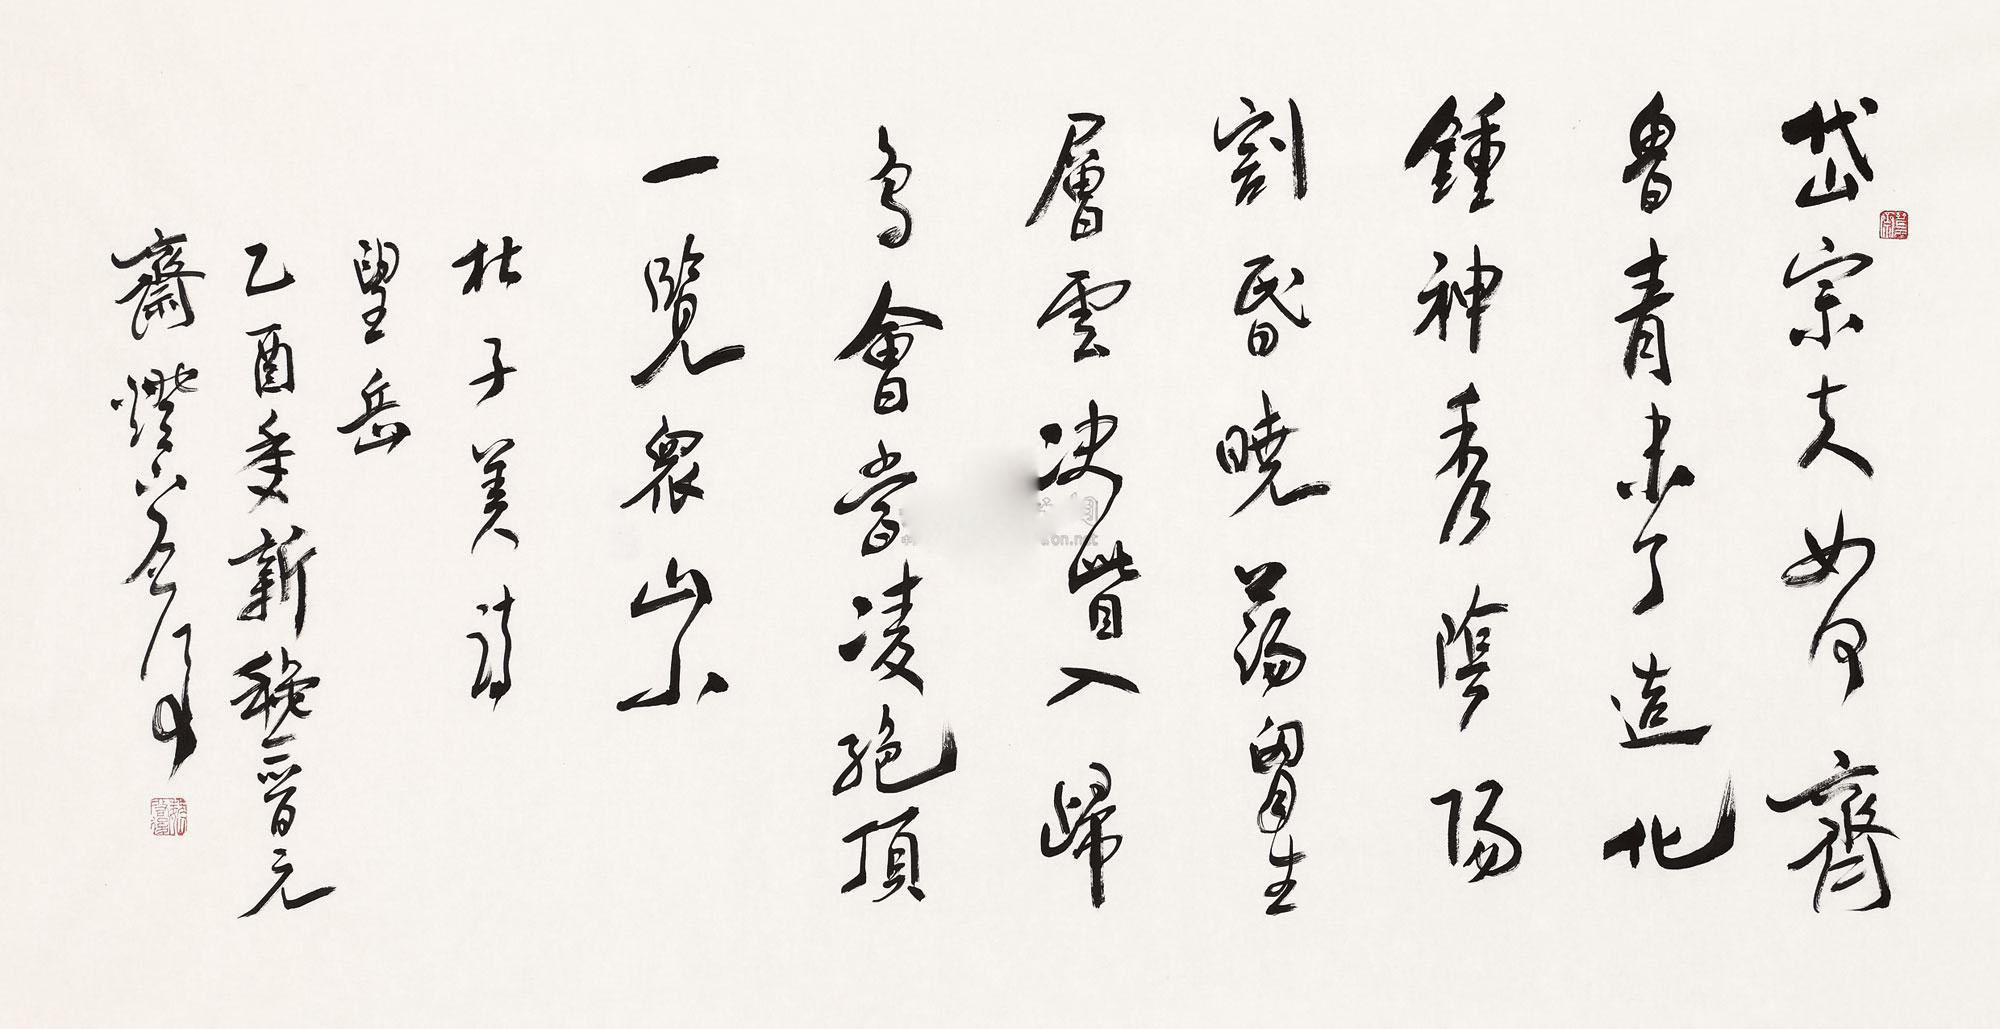 岱宗夫如何齊
魯青未了造化
鍾神秀陰陽
割昏曉蕩胷生
層雲决眥入歸
鳥會當凌絕頂
一覽眾山小
杜子美詩
望岳
乙酉季新穐晉元
齋燈下